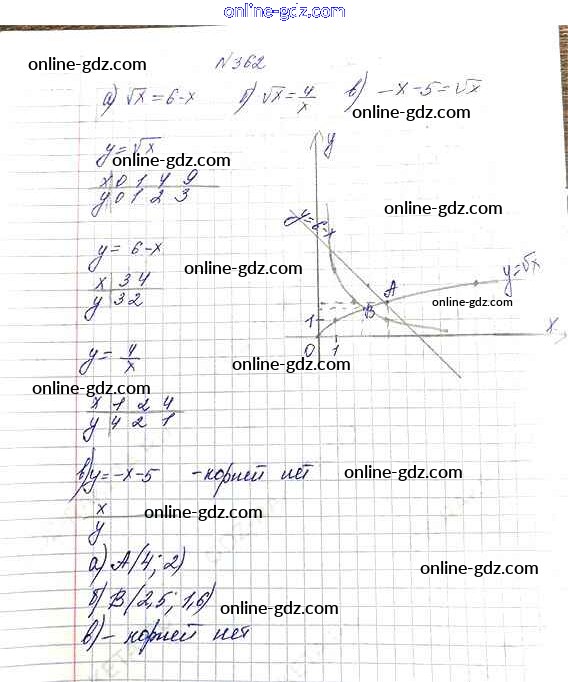 online-gdz.com
N 362
online-gdz.com
а) √x = 6-x б) √x = 4/x в) -x-5 = √x
online-gdz.com
y = √x
online-gdz.com
x 0 1 4 9
y 0 1 2 3
y
online-gdz.com
y = 6-x
y = 6-x
online-gdz.com
x 3 4
y 3 2
y = √x
A
B
online-gdz.com
1
0 1 x
y = 4/x
online-gdz.com
online-gdz.com
x 1 2 4
y 4 2 1
в) y = -x-5 - корней нет
online-gdz.com
x
online-gdz.com
y
а) A(4; 2)
online-gdz.com
б) B(2,5; 1,6)
online-gdz.com
в) - корней нет